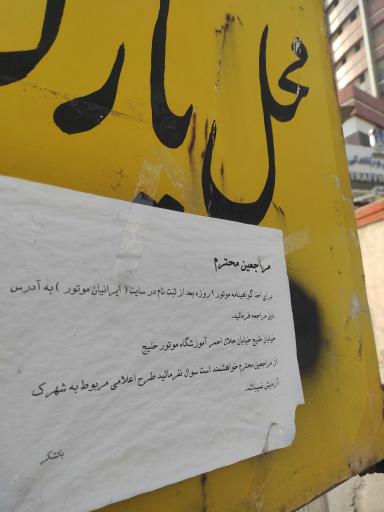 محل پارک
مراجعین محترم
برای اخذ گواهینامه موتور ۱ روزه بعد از ثبت نام در سایت ( ایرانیان موتور ) به آدرس
زیر مراجعه فرمائید.
خیابان خلیج خیابان جلال احمر آموزشگاه موتور خلیج
از مراجعین محترم خواهشمند است سوال نفرمائید طرح اعلامی مربوط به شهرک
آزمایش نمیباشد.
باتشکر
TRAFFI